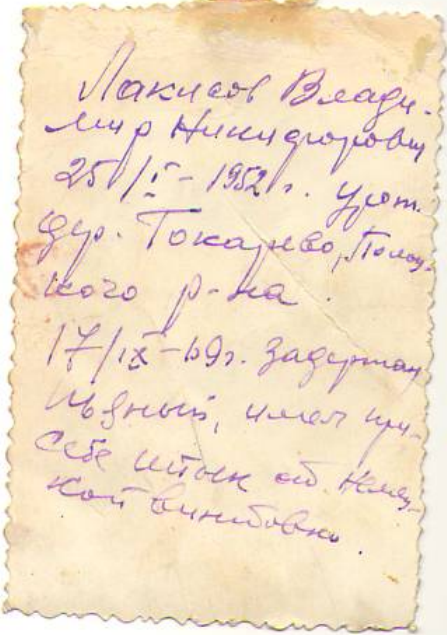 Лакисов Влади-
мир Никифорович
25/I-1952 г. урож.
дер. Токарево, Полоц-
кого р-на.
17/IX-69г. Задержан
пьяный, имел при
себе штык от немец-
кой винтовки.